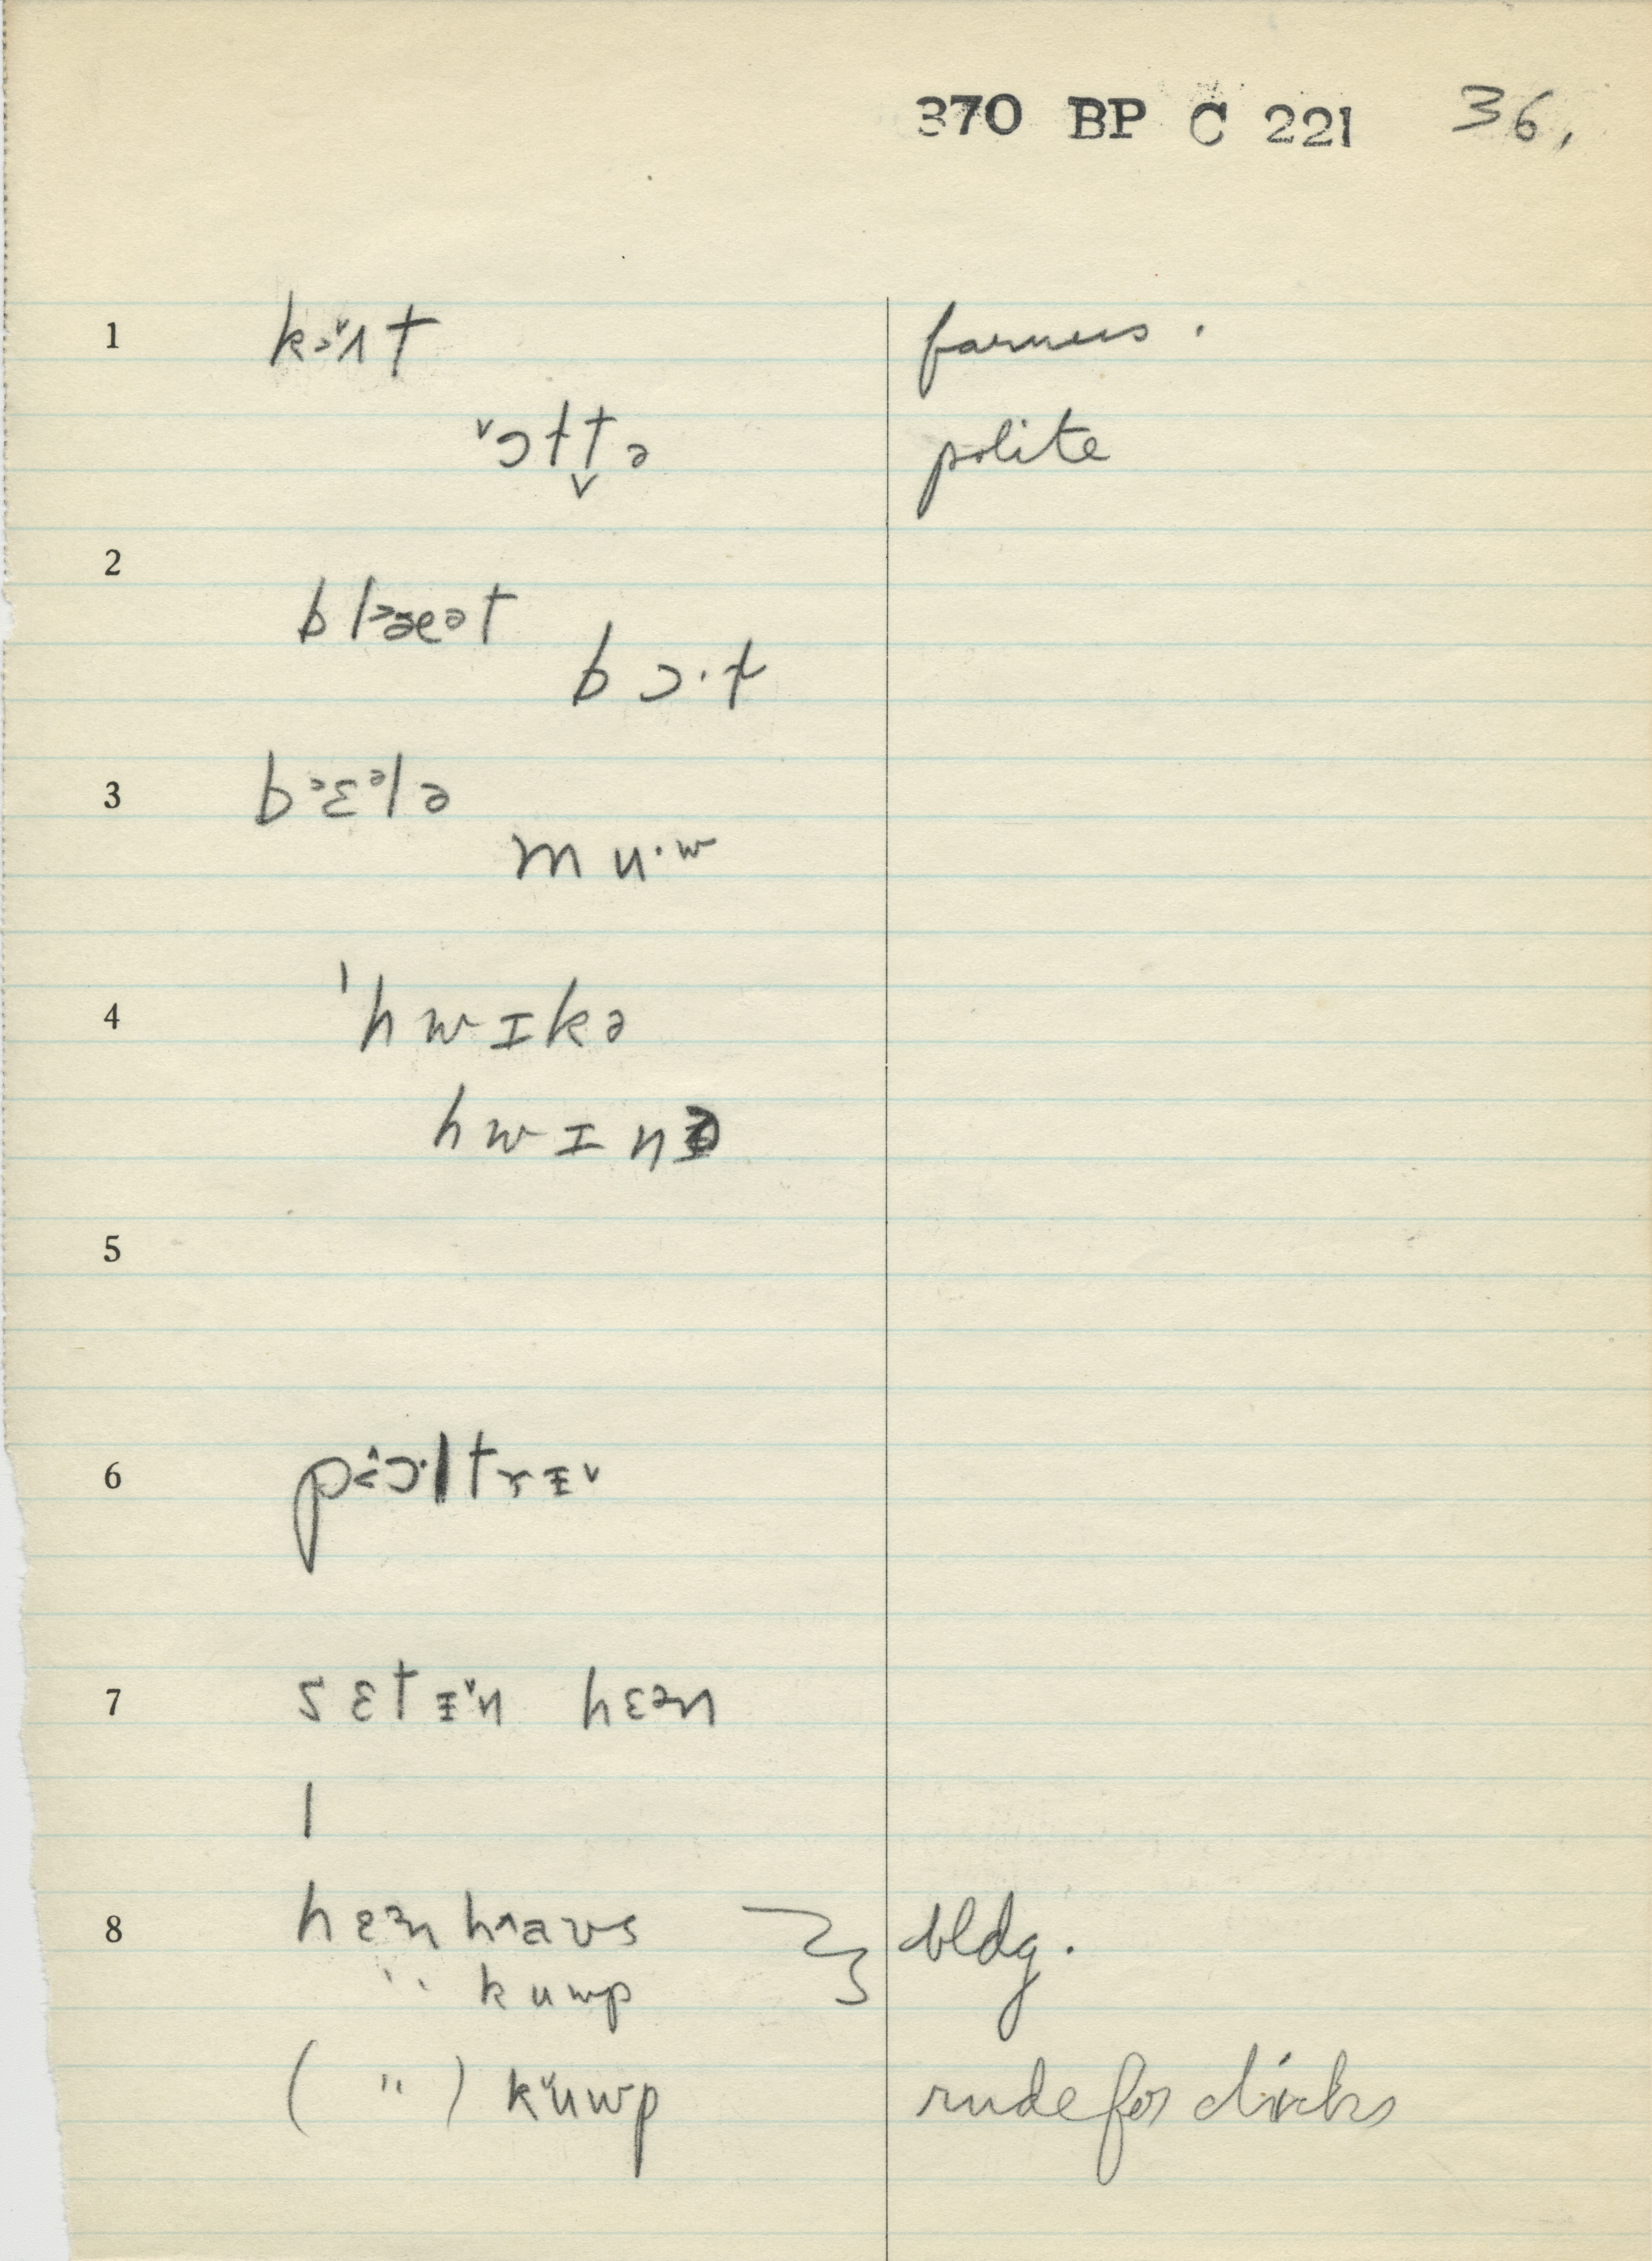 370 BP C 221 36.
1 kɔ˅ɪt farmers.
˅ɔɫt̬ə polite
2
blᵊæᵊt
bɔ·ɫ
3 bᵊɛᵊlə
mu·w
4 ˈhwɪkə
hwɪn
5
6 pɔ·ltrɪ˅
7 sɛtɪ˅n hɛən
l
8 hɛən haʊs bldg.
" kuwp
( " ) ku˅wp rude for